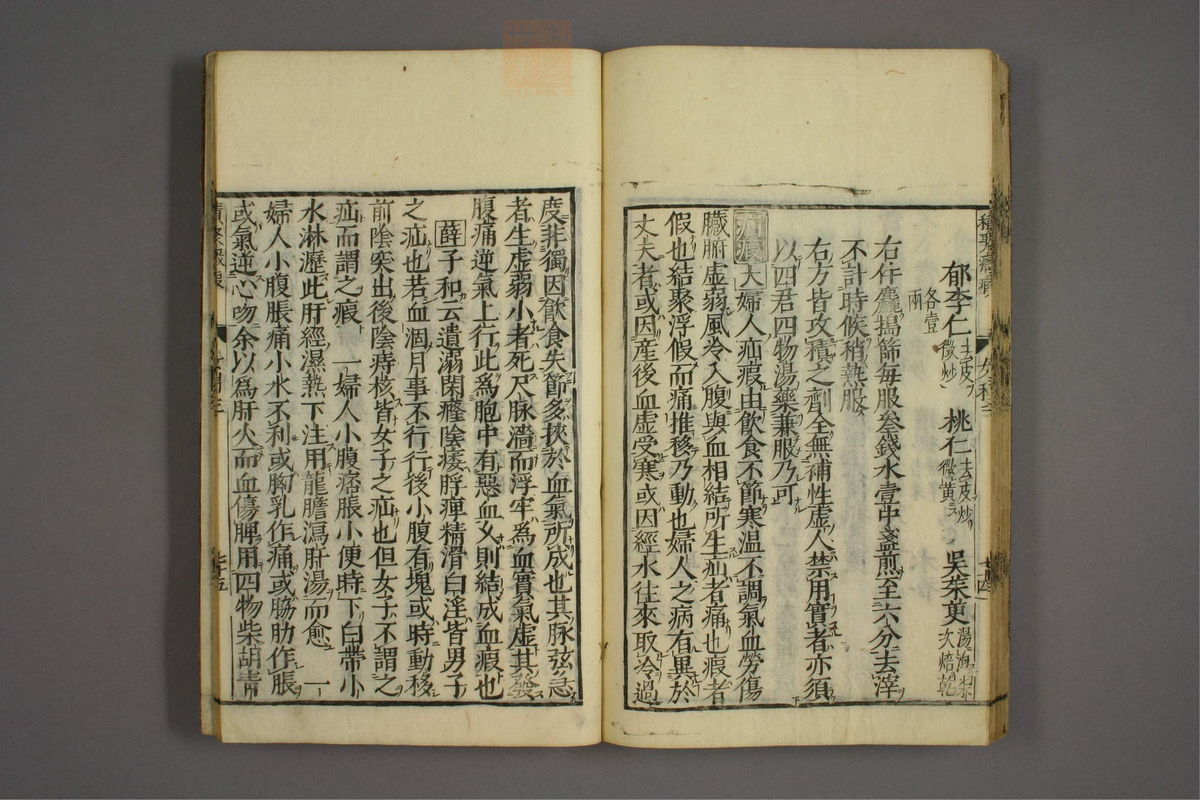 郁李仁 去皮微炒 桃仁 去皮炒微黃 吳茱萸 湯泡 次焙乾
各壹兩
右件麄搗篩每服叄錢水壹中盞煎至六分去滓
不計時候稍熱服
右方皆攻積之劑全無補性虚人禁用實者亦須
以四君四物湯藥兼服乃可
疝瘕 大 婦人疝瘕由飲食不節寒温不調氣血勞傷
臟腑虚弱風冷入腹與血相結所生疝者痛也瘕者
假也結聚浮假而痛推移乃動也婦人之病有異於
丈夫者或因産後血虚受寒或因經水往來取冷過
度非獨因飲食失節多挾於血氣所成也其脉弦急
者生虚弱小者死尺脉濇而浮牢爲血實氣虚其發
腹痛逆氣上行此爲胞中有惡血乆則結成血瘕也
薛 子和云遺溺閉癃陰痿脬痺精滑白淫皆男子
之疝也若血涸月事不行行後小腹有塊或時動移
前陰突出後陰痔核皆女子之疝也但女子不謂之
疝而謂之瘕 一婦人小腹痞脹小便時下白帶小
水淋瀝此肝經濕熱下注用龍膽瀉肝湯而愈 一
婦人小腹脹痛小水不利或胸乳作痛或脇肋作脹
或氣逆心吻余以爲肝火而血傷脾用四物柴胡青
廿四